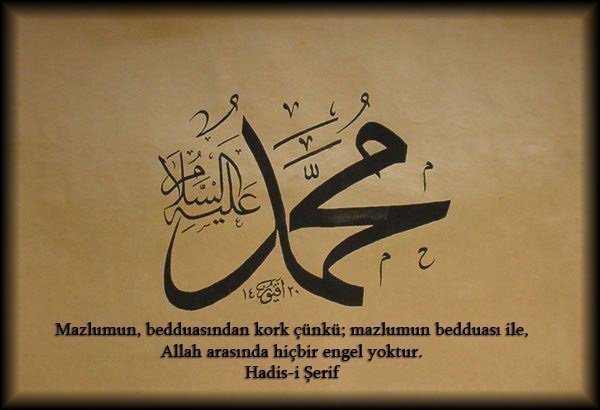 محمد
عليه السلام
Mazlumun, bedduasından kork çünkü; mazlumun bedduası ile,
Allah arasında hiçbir engel yoktur.
Hadis-i Şerif